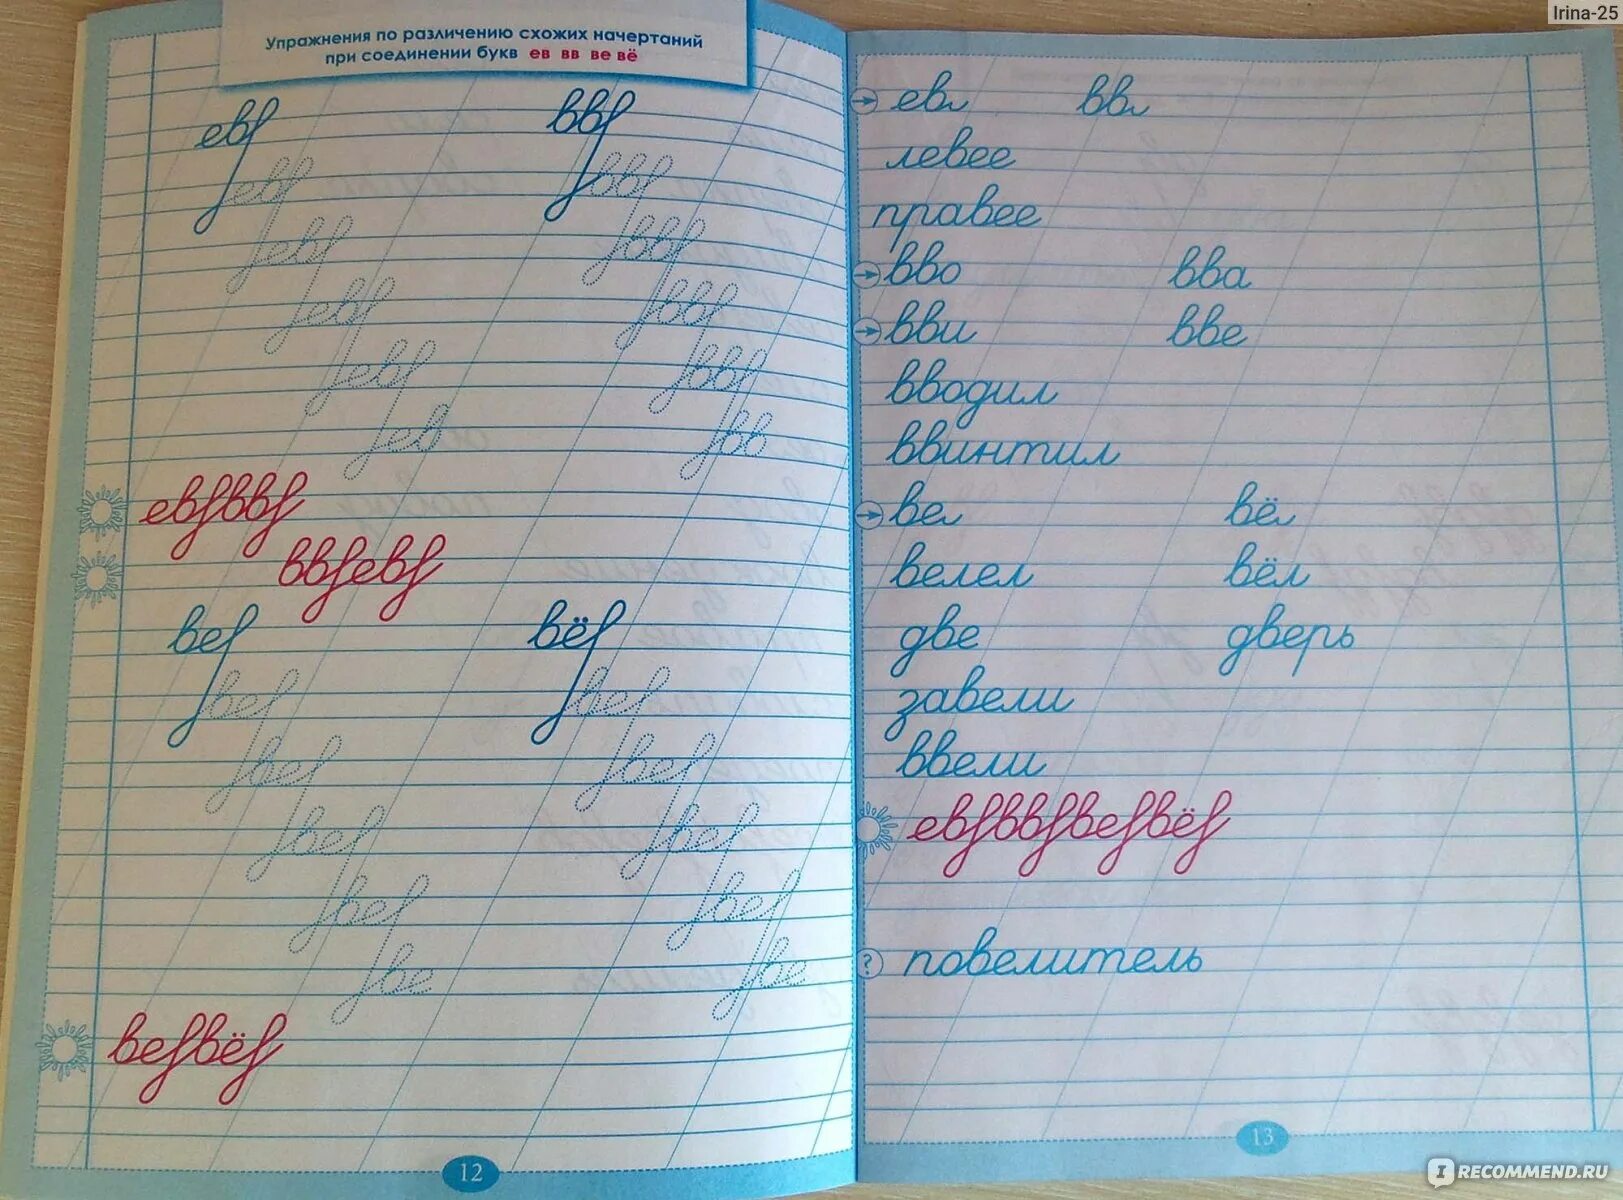 Irina-25
Упражнения по различению схожих начертаний
при соединении букв ев вв ве вё
ев вв
ев вв
ев вв
ев вв
ев вв
ев вв
евввв
ввев
ве вё
ве ве
ве ве
ве ве
ве ве
ве ве
вевё
12
евл ввл
левее
правее
вво вва
вви вве
вводил
ввинтил
вел вёл
велел вёл
две дверь
завели
ввели
евввве вё
? повелитель
13
IRECOMMEND.RU